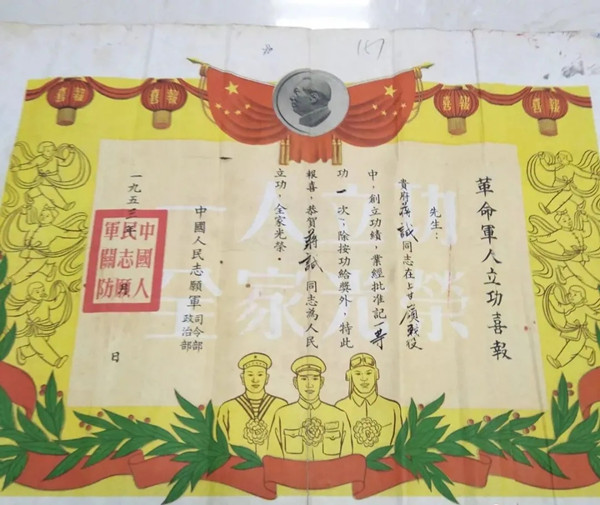 187
喜報
喜報
喜報
喜報
革命軍人立功喜報
先生：
貴府蔣誠同志在上甘嶺战役
中，創立功績，業經批准記一等
功一次，除按功給獎外，特此
報喜，恭賀蔣誠同志為人民
立功，全家光榮。
中國人民志願軍司令部
政治部
一九五三年 月 日
中國人
民志願
軍關防
一人立功
全家光榮